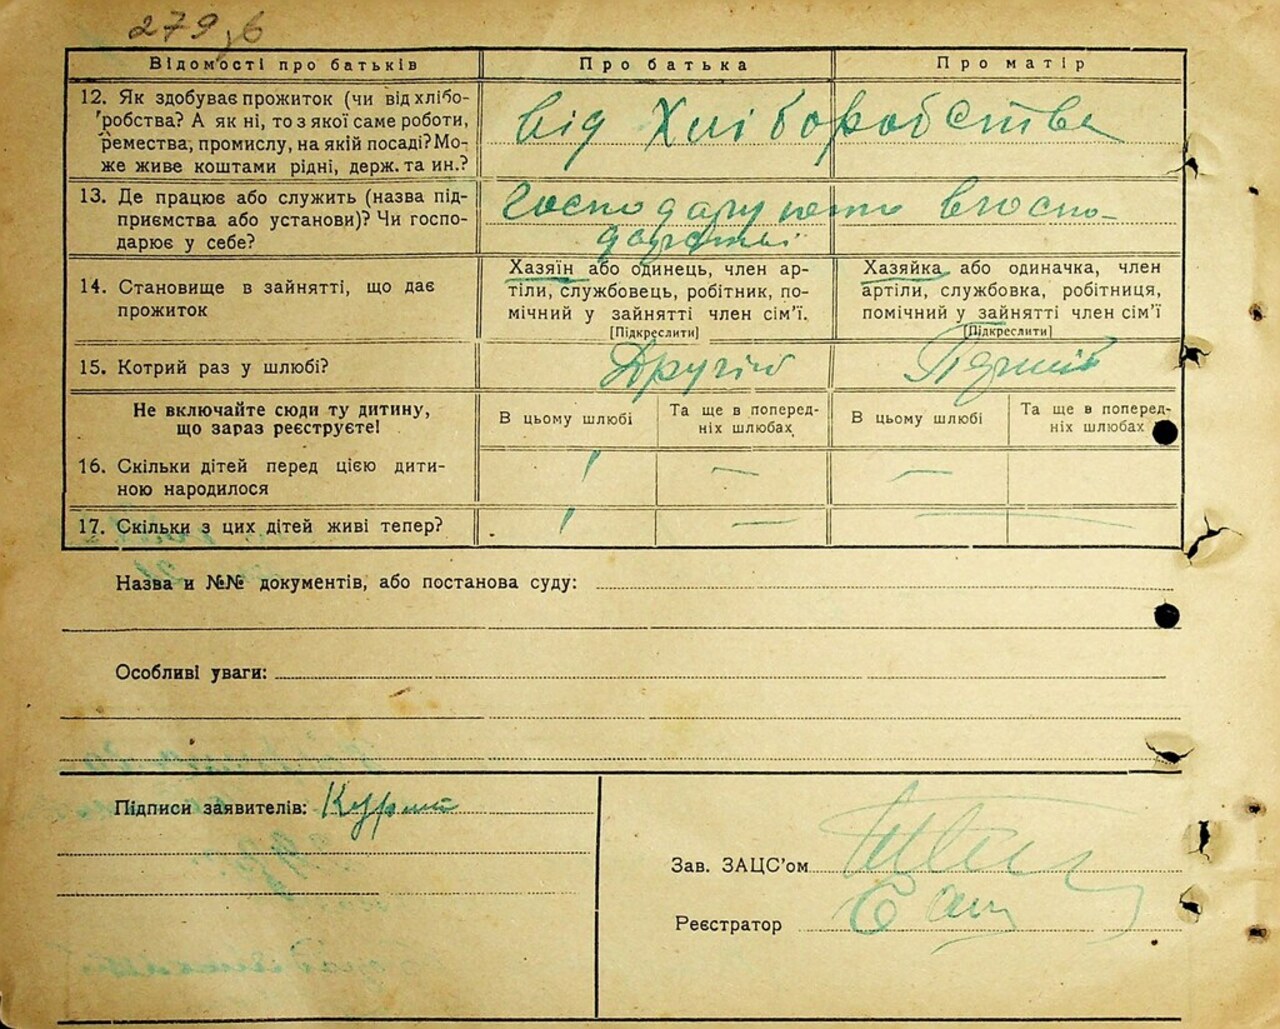 279 зв
Відомості про батьків Про батька Про матір
12. Як здобуває прожиток (чи від хлібо-
робства? А як ні, то з якої саме роботи,
ремества, промислу, на якій посаді? Мо-
же живе коштами рідні, держ. та ин.?
від Хліборобства
13. Де працює або служить (назва під-
приємства або установи)? Чи госпо-
дарює у себе?
14. Становище в зайнятті, що дає
прожиток
Хазяїн або одинець, член ар-
тіли, службовець, робітник, по-
мічний у зайнятті член сім'ї.
[Підкреслити]
Хазяйка або одиначка, член
артіли, службовка, робітниця,
помічний у зайнятті член сім'ї
[Підкреслити]
15. Котрий раз у шлюбі? Другий
Не включайте сюди ту дитину,
що зараз реєструєте!
В цьому шлюбі
Та ще в поперед-
ніх шлюбах
В цьому шлюбі
Та ще в поперед-
ніх шлюбах
16. Скільки дітей перед цією дити-
ною народилося
1 — —
17. Скільки з цих дітей живі тепер? 1 — —
Назва и №№ документів, або постанова суду:
Особливі уваги:
Підписи заявителів:
Зав. ЗАЦС'ом
Реєстратор